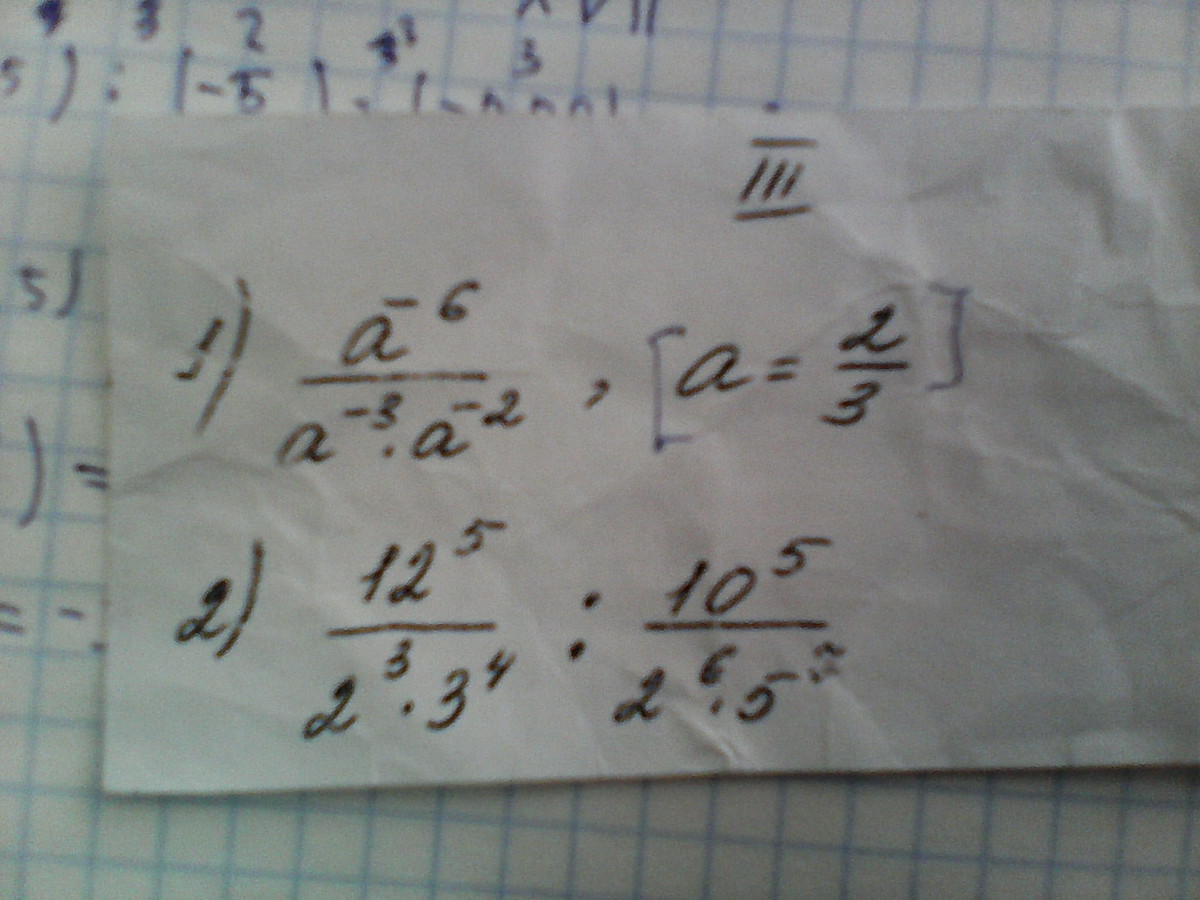 5) : (-2/5) . (-
III
5)
1) a⁻⁶/(a⁻³ · a⁻²) , [a = 2/3]
) =
2) 12⁵/(2³ · 3⁴) : 10⁵/(2⁶ · 5)
= -